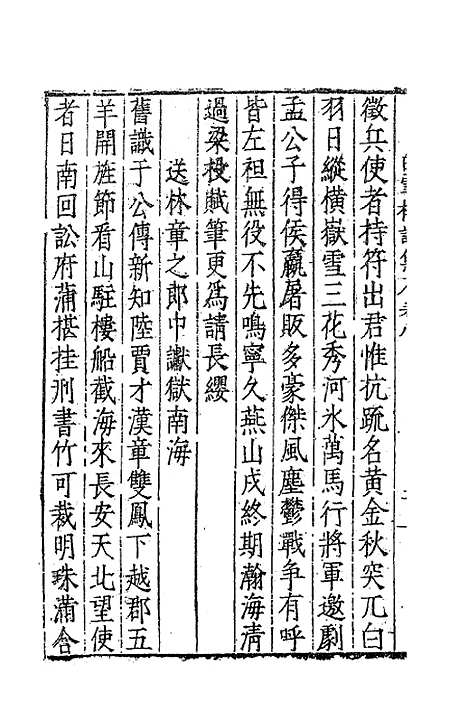 徵兵使者持符出君惟抗䟽名黄金秋突兀白
羽日縱横嶽雪三花秀河氷萬馬行將軍邀劇
孟公子得侯嬴屠販多豪傑風塵鬱戰争有呼
皆左袒無役不先鳴寧久燕山戍終期瀚海清
過梁投賦筆更爲請長纓
送林章之郎中讞獄南海
舊識于公傳新知陸賈才漢章雙鳳下越郡五
羊開旌節看山駐樓船截海來長安天北望使
者日南回訟府蒲堪挂刑書竹可裁明珠滿合